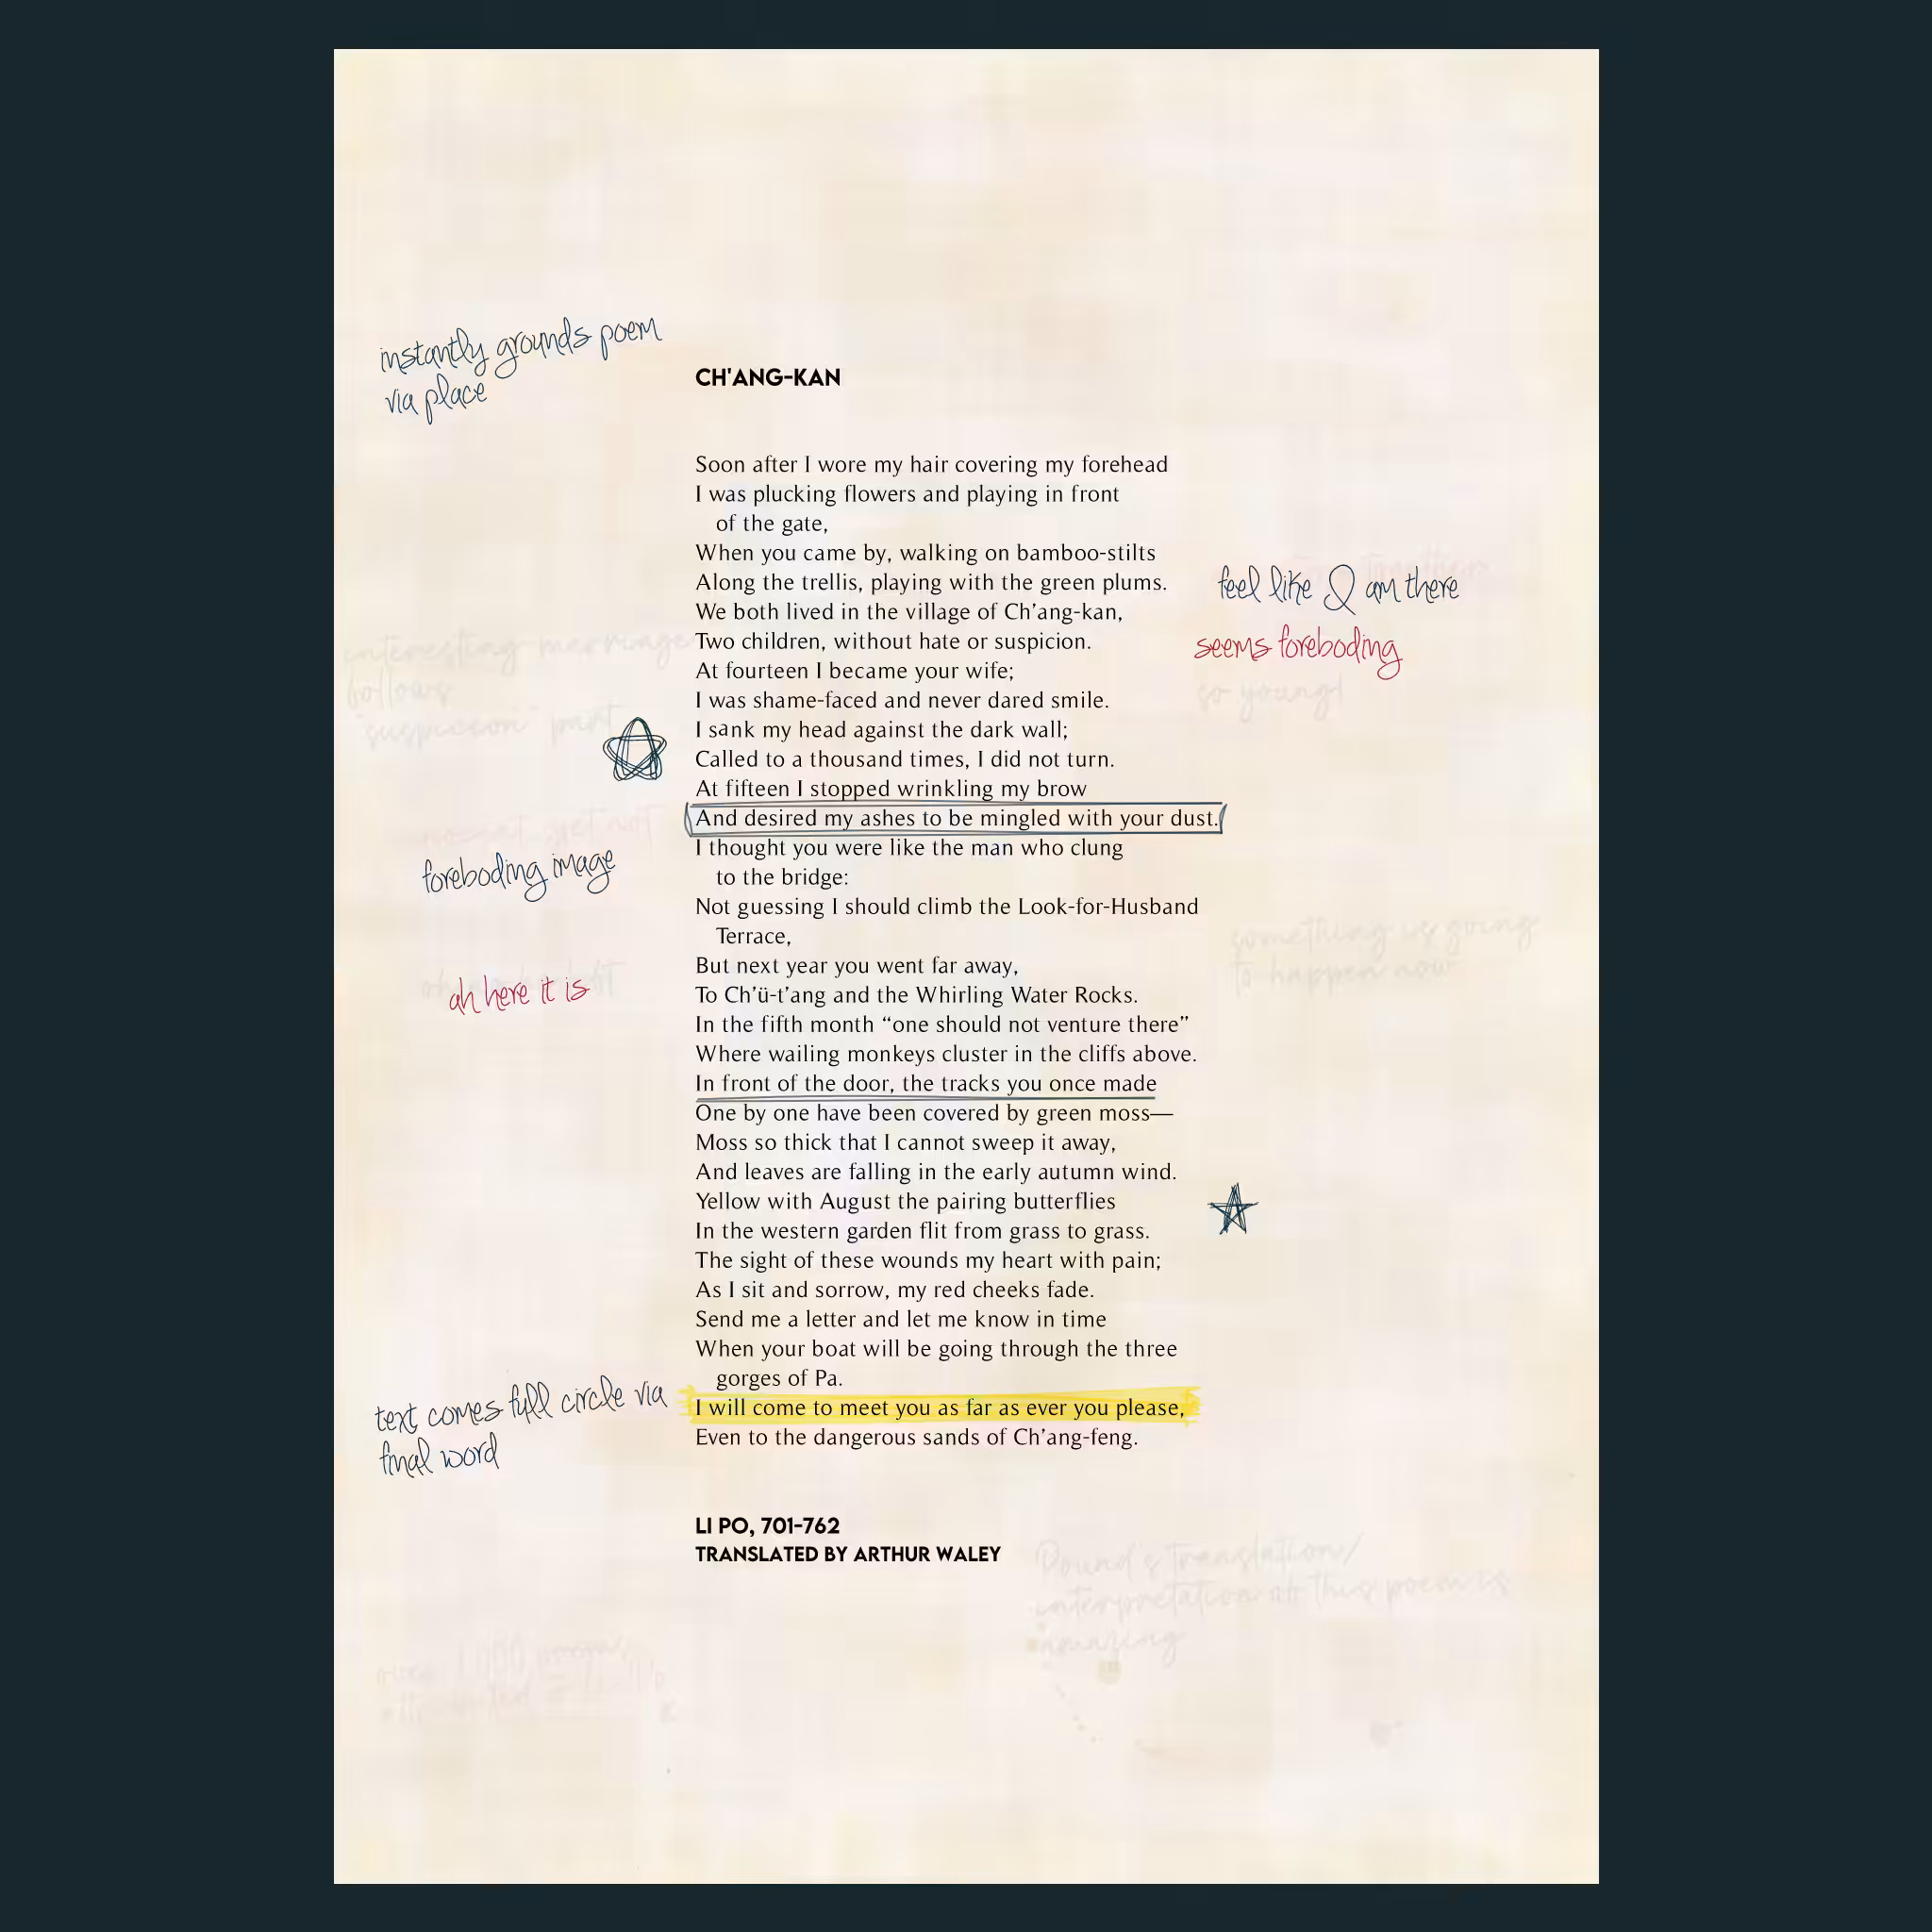 instantly grounds poem
via place
CH'ANG-KAN
Soon after I wore my hair covering my forehead
I was plucking flowers and playing in front
of the gate,
When you came by, walking on bamboo-stilts
Along the trellis, playing with the green plums.
feel like I am there
We both lived in the village of Ch’ang-kan,
Two children, without hate or suspicion.
seems foreboding
interesting marriage
follows
"suspicion" part
At fourteen I became your wife;
so young!
I was shame-faced and never dared smile.
I sank my head against the dark wall;
Called to a thousand times, I did not turn.
At fifteen I stopped wrinkling my brow
And desired my ashes to be mingled with your dust.
foreboding image
I thought you were like the man who clung
to the bridge:
Not guessing I should climb the Look-for-Husband
Terrace,
something is going
to happen now
But next year you went far away,
ah here it is
To Ch’ü-t’ang and the Whirling Water Rocks.
In the fifth month “one should not venture there”
Where wailing monkeys cluster in the cliffs above.
In front of the door, the tracks you once made
One by one have been covered by green moss—
Moss so thick that I cannot sweep it away,
And leaves are falling in the early autumn wind.
Yellow with August the pairing butterflies
In the western garden flit from grass to grass.
The sight of these wounds my heart with pain;
As I sit and sorrow, my red cheeks fade.
Send me a letter and let me know in time
When your boat will be going through the three
gorges of Pa.
I will come to meet you as far as ever you please,
Even to the dangerous sands of Ch’ang-feng.
text comes full circle via
final word
LI PO, 701-762
TRANSLATED BY ARTHUR WALEY
Pound's translation/
interpretation of this poem is
amazing